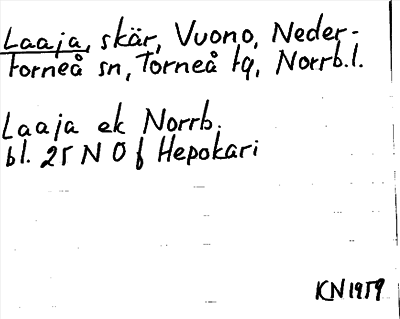 Laaja, skär, Vuono, Neder-
torneå sn, Torneå tg, Norrb.l.
Laaja ek Norrb.
bl. 25 N O f Hepokari
KN 1959